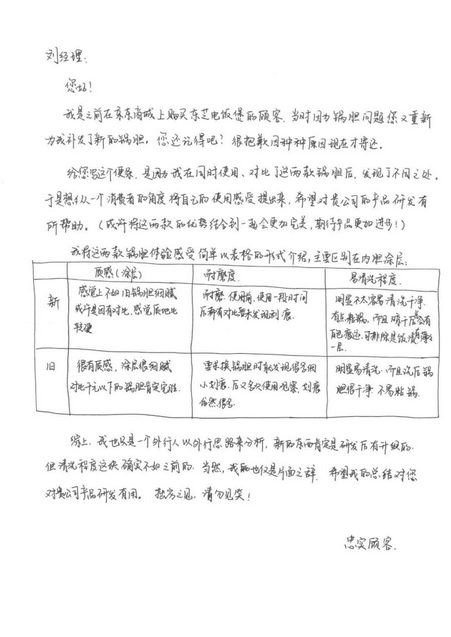 刘经理：
您好！
我是之前在京东商城上购买东芝电饭煲的顾客，当时因为锅胆问题您又重新
为我补发了新的锅胆，您还记得吧？很抱歉因种种原因现在才寄还。
给您写这个便条，是因为我在同时使用、对比了这两款锅胆后，发现了不同之处，
于是想从一个消费者的角度将自己的使用感受提出来，希望对贵公司的产品研发有
所帮助。（或许将这两款的优势结合到一起会更加完美，期待产品更加进步！）
我将这两款锅胆体验感受简单以表格的形式介绍，主要区别在内胆涂层：
质感（涂层） 耐磨度 易清洗程度
新
感觉上不如旧锅胆细腻
或许是因有对比，感觉质地比
较硬
耐磨，使用前、使用一段时间
后稍有对比暂未发现刮痕
明显不太容易清洗干净，
有点粘锅，而且晾干后会有
一层
旧
很有质感，涂层很细腻
对比千元以下的锅胆肯定完胜。
需来换锅胆时就发现很多细
小刮痕，后又多次使用观察，刮痕
依然很多
明显易清洗，而且洗后锅
胆很干净，不易粘锅。
综上，我也只是一个外行人以外行思路来分析，新的东西肯定是研发后有升级的，
但清洗程度这块确实不如之前的，当然，我的也仅是片面之辞，希望我的总结对您
对贵公司产品研发有用。拙劣之见，请勿见笑！
忠实顾客